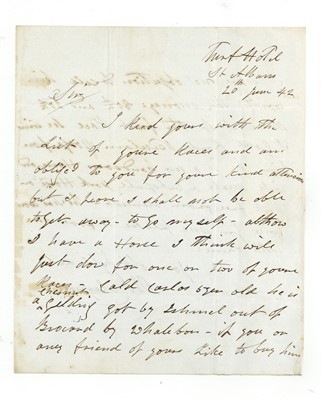 Turf Hotel
St Albans
20th June 42
Sir,
I Read yours with the
List of youre Races and am
oblige'd to you for youre kind attension
but I feare I shall not be able
to gett away - to Go myself - althow
I have a Horse I think will
Just dow for one or two of youre
Races Cald Carlos 6 yer old he is
a chesnut Gelding got by
out of
Brocard by Whalebon - if you or
aney friend of yours Like to buy him